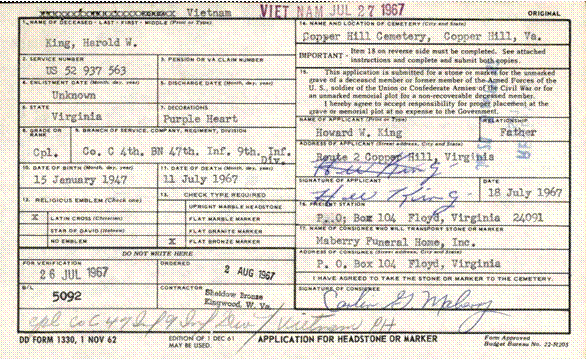 Vietnam
VIET NAM JUL 27 1967
ORIGINAL
1. NAME OF DECEASED - LAST - FIRST - MIDDLE (Print or Type)
King, Harold W.
14. NAME AND LOCATION OF CEMETERY (City and State)
Copper Hill Cemetery, Copper Hill, Va.
2. SERVICE NUMBER
US 52 937 563
3. PENSION OR VA CLAIM NUMBER
IMPORTANT - Item 18 on reverse side must be completed. See attached
instructions and complete and submit both copies.
4. ENLISTMENT DATE (Month, day, year)
Unknown
5. DISCHARGE DATE (Month, day, year)
15. This application is submitted for a stone or marker for the unmarked
grave of a deceased member or former member of the Armed Forces of the
U. S., soldier of the Union or Confederate Armies of the Civil War or for
an unmarked memorial plot for a non-recoverable deceased member.
I hereby agree to accept responsibility for proper placement at the
grave or memorial plot at no expense to the Government.
6. STATE
Virginia
7. DECORATIONS
Purple Heart
NAME OF APPLICANT (Print or Type)
Howard W. King
RELATIONSHIP
Father
8. GRADE OR RANK
Cpl.
9. BRANCH OF SERVICE, COMPANY, REGIMENT, DIVISION
Co. C 4th. BN 47th. Inf. 9th. Inf.
Div.
ADDRESS OF APPLICANT (City and State)
Route 2 Copper Hill, Virginia
10. DATE OF BIRTH (Month, day, year)
15 January 1947
11. DATE OF DEATH (Month, day, year)
11 July 1967
SIGNATURE OF APPLICANT
H W King
DATE
18 July 1967
12. RELIGIOUS EMBLEM (Check one)
X LATIN CROSS (Christian)
STAR OF DAVID (Hebrew)
NO EMBLEM
13. CHECK TYPE REQUIRED
UPRIGHT MARBLE HEADSTONE
FLAT MARBLE MARKER
FLAT GRANITE MARKER
X FLAT BRONZE MARKER
16. FREIGHT STATION
P. O. Box 104 Floyd, Virginia 24091
17. NAME OF CONSIGNEE WHO WILL TRANSPORT STONE OR MARKER
Maberry Funeral Home, Inc.
DO NOT WRITE HERE
ADDRESS OF CONSIGNEE (City and State)
P. O. Box 104 Floyd, Virginia
FOR VERIFICATION
26 JUL 1967
ORDERED
2 AUG 1967
I HAVE AGREED TO TAKE THE STONE OR MARKER TO THE CEMETERY.
B/L
5092
CONTRACTOR
Sheidow Bronze
Kingwood, W. Va.
SIGNATURE OF CONSIGNEE
Cpl Co C 47 Inf 9 Inf Div / Vietnam PH
DD FORM 1330, 1 NOV 62
EDITION OF 1 DEC 61
MAY BE USED.
APPLICATION FOR HEADSTONE OR MARKER
Form Approved
Budget Bureau No. 22-R205